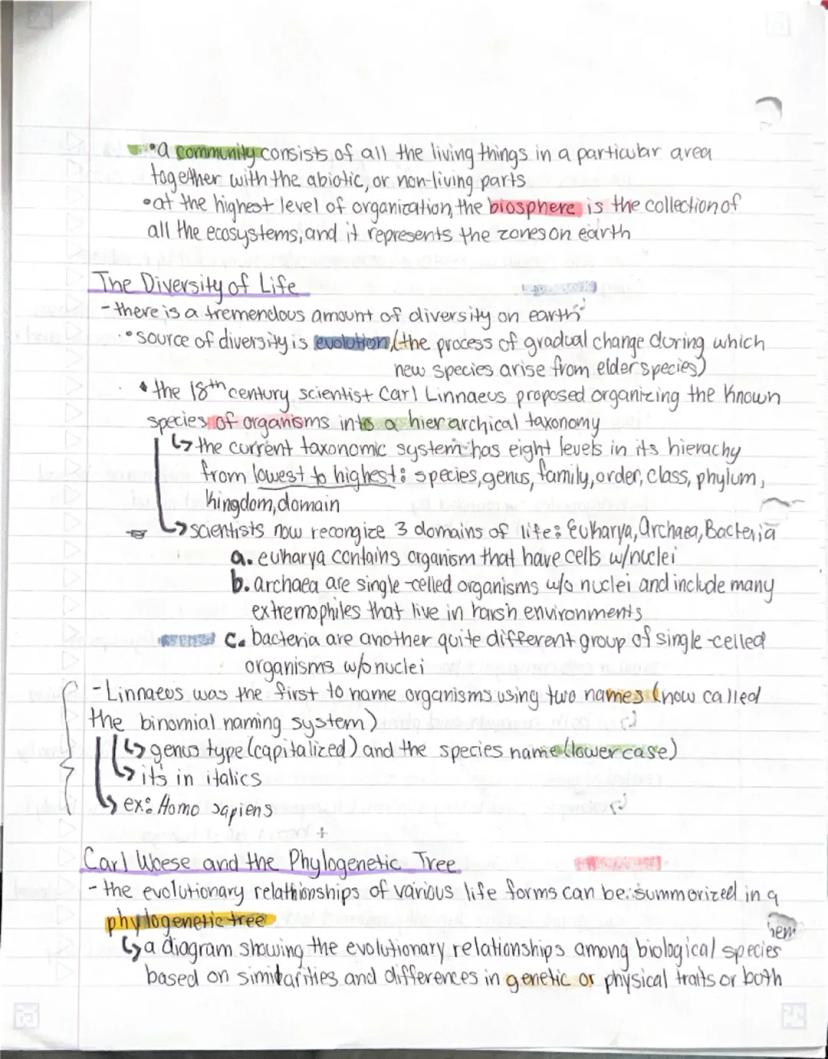 •a community consists of all the living things in a particular area
together with the abiotic, or non-living parts
•at the highest level of organization, the biosphere is the collection of
all the ecosystems, and it represents the zones on earth
The Diversity of Life
-there is a tremendous amount of diversity on earth
•source of diversity is evolution (the process of gradual change during which
new species arise from elder species)
•the 18th century scientist Carl Linnaeus proposed organizing the known
species of organisms into a hierarchical taxonomy
↳the current taxonomic system has eight levels in its hierachy
from lowest to highest: species, genus, family, order, class, phylum,
kingdom, domain
↳scientists now recongize 3 domains of life: Eukarya, Archaea, Bacteria
a. eukarya contains organism that have cells w/nuclei
b. archaea are single-celled organisms w/o nuclei and include many
extremophiles that live in harsh environments
c. bacteria are another quite different group of single-celled
organisms w/o nuclei
-Linnaeus was the first to name organisms using two names (now called
the binomial naming system)
↳genus type (capitalized) and the species name (lowercase)
↳its in italics
↳ex: Homo sapiens
Carl Woese and the Phylogenetic Tree
-the evolutionary relathionships of various life forms can be summorized in a
phylogenetic tree
↳a diagram showing the evolutionary relationships among biological species
based on similarities and differences in genetic or physical traits or both